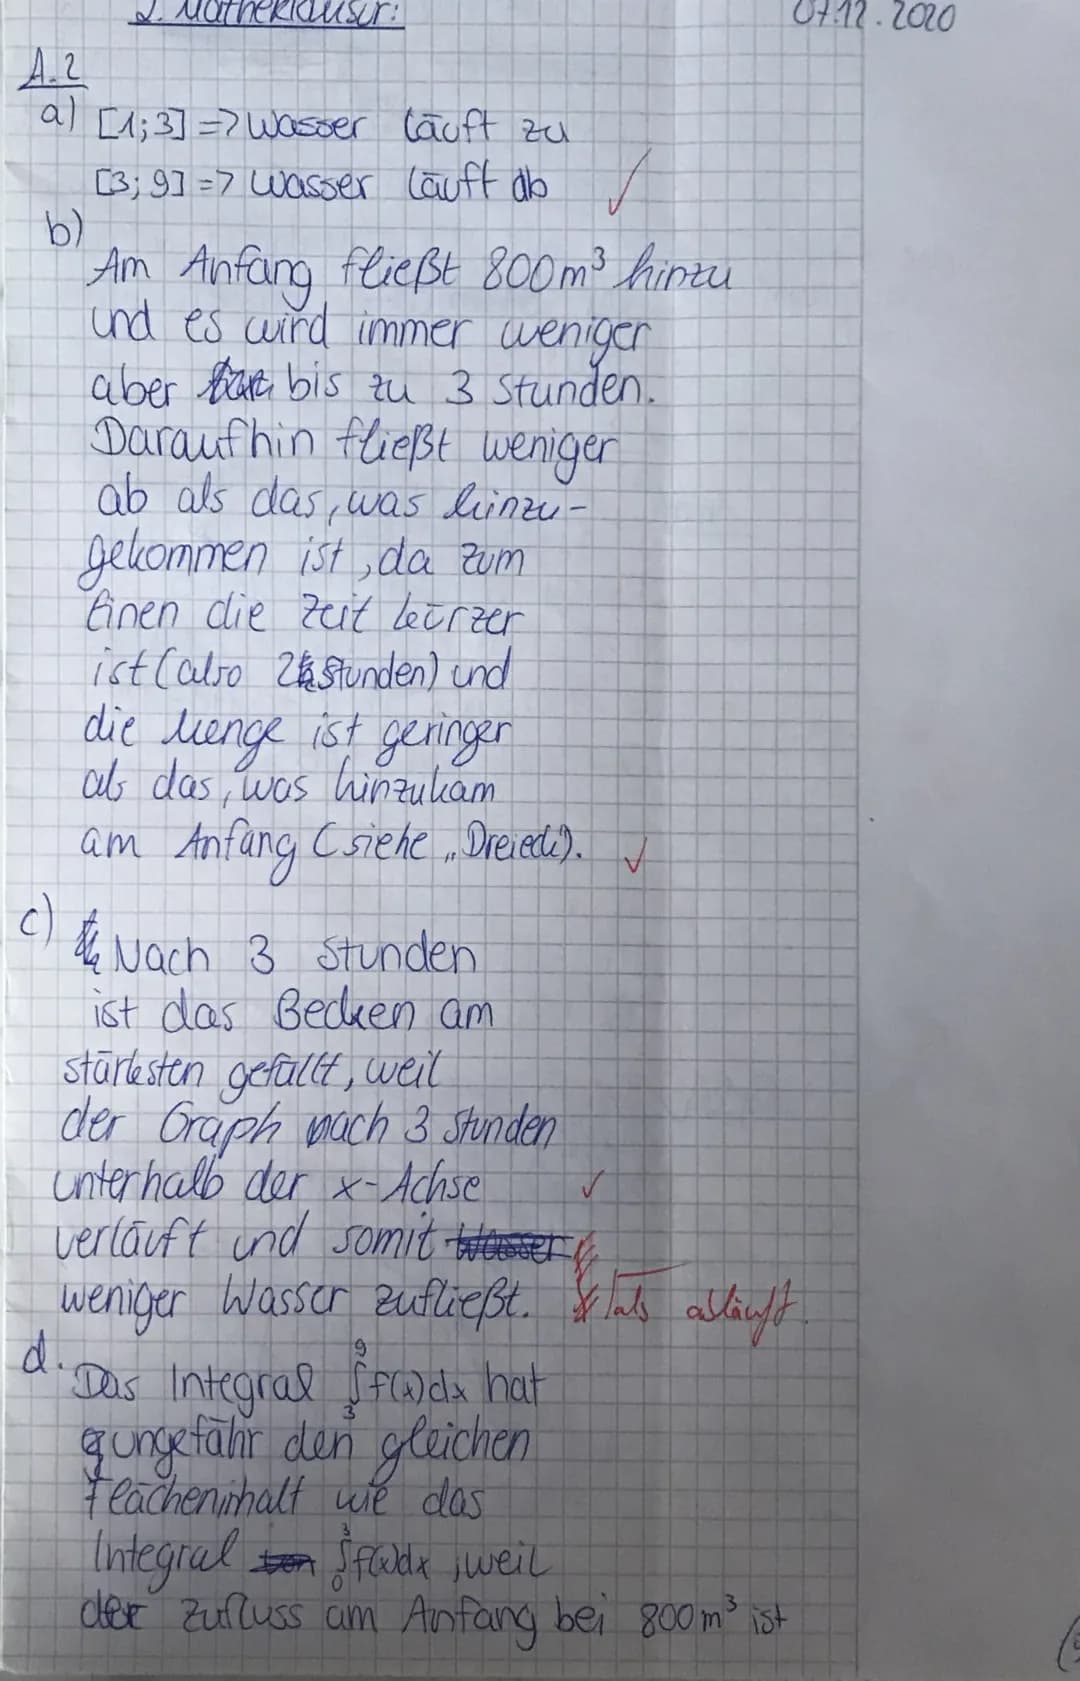 2. Matheklausur: 07.12.2020
A.2
a) [1;3] => Wasser läuft zu
[3;9] => Wasser läuft ab ✓
b)
Am Anfang fließt 800m³ hinzu
und es wird immer weniger
aber bis zu 3 Stunden.
Daraufhin fließt weniger
ab als das, was hinzu-
gekommen ist, da zum
Einen die Zeit kürzer
ist (also 2 Stunden) und
die Menge ist geringer
als das, was hinzukam
am Anfang (siehe „Dreieck"). ✓
c) Nach 3 Stunden
ist das Becken am
stärksten gefüllt, weil
der Graph nach 3 Stunden
unterhalb der x-Achse ✓
verläuft und somit Wasser
weniger Wasser zufließt. als abläuft.
d. Das Integral ∫₃⁹ f(x)dx hat
ungefähr den gleichen
Flächeninhalt wie das
Integral ∫₀³ f(x)dx, weil
der Zufluss am Anfang bei 800m³ ist